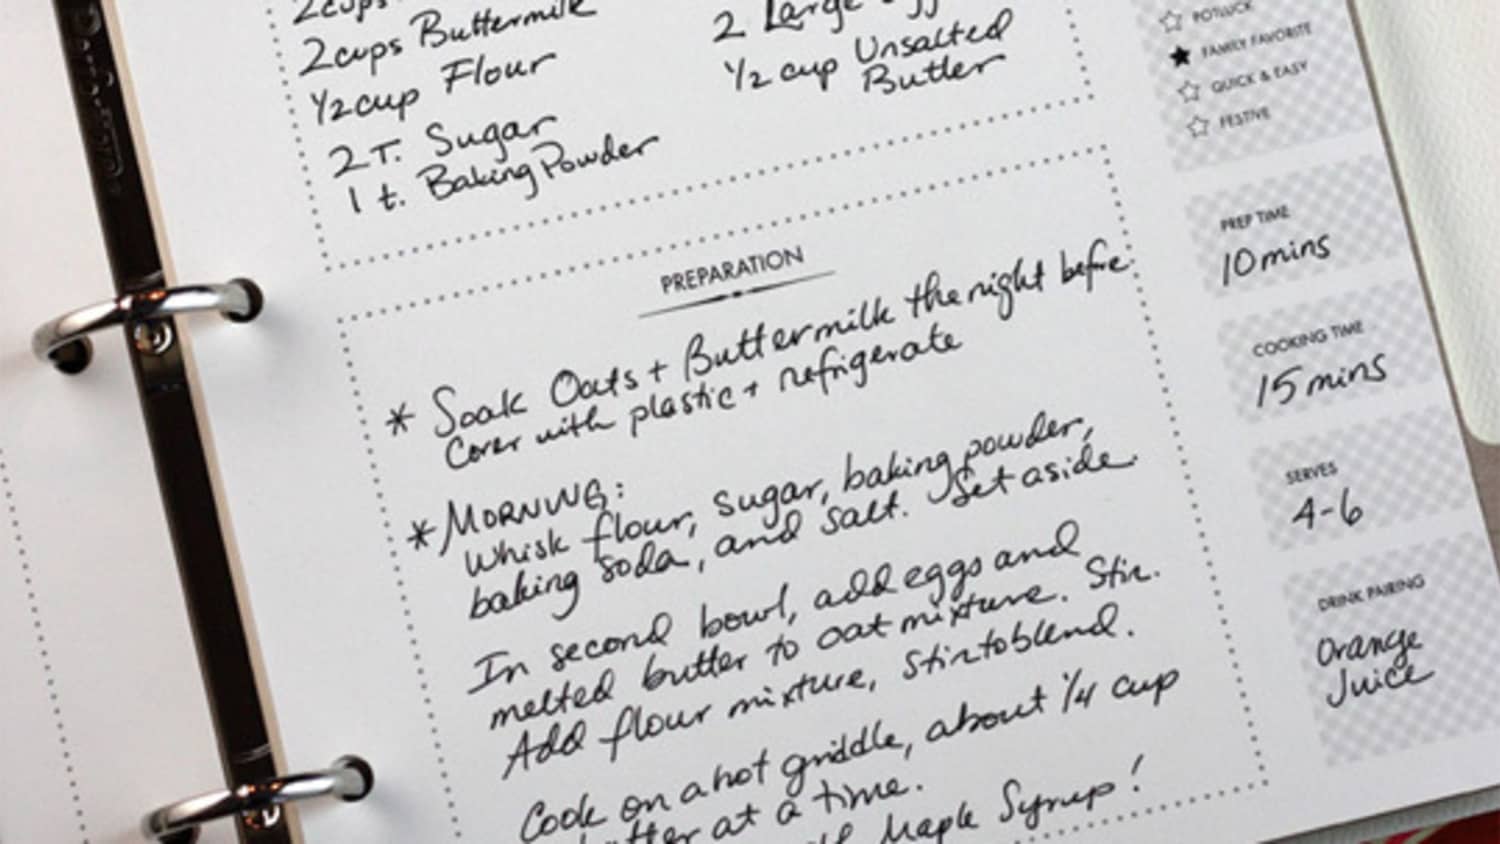 2 cups
2 cups Buttermilk
1/2 cup Flour
2 T. Sugar
1 t. Baking Powder
2 Large
1/2 cup Unsalted
Butter
PREPARATION
* Soak Oats + Buttermilk the night before.
Cover with plastic + refrigerate
* MORNING:
Whisk flour, sugar, baking powder,
baking soda, and salt. Set aside.
In second bowl, add eggs and
melted butter to oat mixture. Stir.
Add flour mixture, stir to blend.
Cook on a hot griddle, about 1/4 cup
at a time.
Maple Syrup!
POTLUCK
FAMILY FAVORITE
QUICK & EASY
FESTIVE
PREP TIME
10 mins
COOKING TIME
15 mins
SERVES
4-6
DRINK PAIRING
Orange
Juice